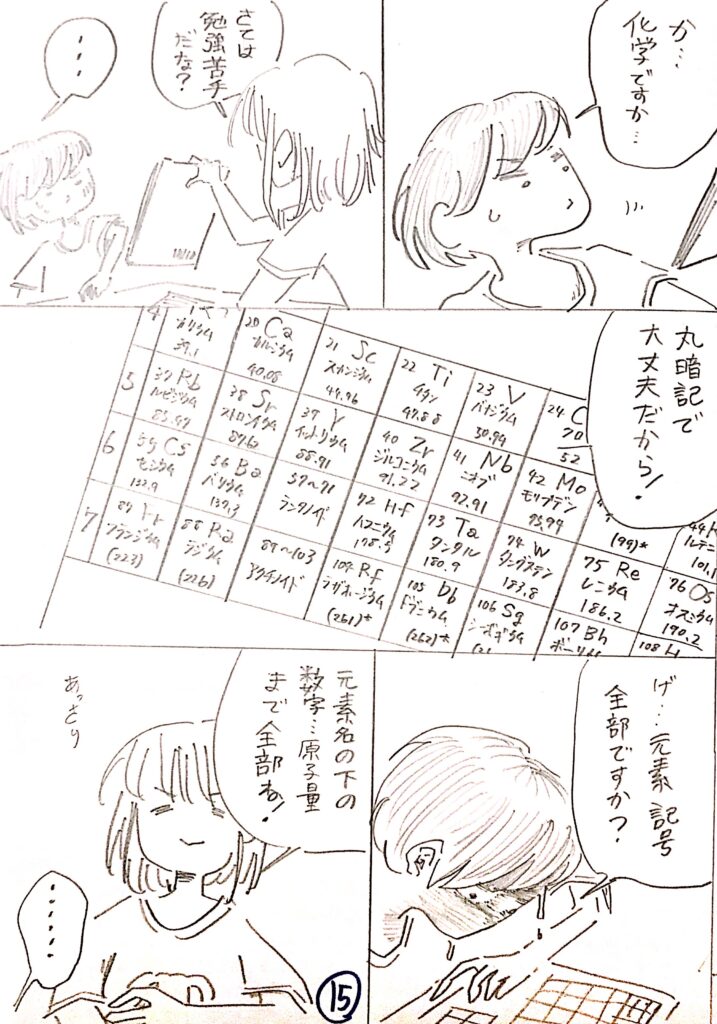 か…
化学ですか…
さては
勉強苦手
だな？
…
丸暗記で
大丈夫だから！
4
カリウム
39.1
20 Ca
カルシウム
40.08
21 Sc
スカンジウム
44.96
22 Ti
チタン
47.88
23 V
バナジウム
50.94
24 C
52
5
37 Rb
ルビジウム
85.47
38 Sr
ストロンチウム
87.62
39 Y
イットリウム
88.91
40 Zr
ジルコニウム
91.22
41 Nb
ニオブ
92.91
42 Mo
モリブデン
95.94
(99)*
44 R
ルテニ
101.1
6
55 Cs
セシウム
132.9
56 Ba
バリウム
137.3
57〜71
ランタノイド
72 Hf
ハフニウム
178.5
73 Ta
タンタル
180.9
74 W
タングステン
183.8
75 Re
レニウム
186.2
76 Os
オスミウム
190.2
7
87 Fr
フランシウム
(223)
88 Ra
ラジウム
(226)
89〜103
アクチノイド
104 Rf
ラザホージウム
(261)*
105 Db
ドブニウム
(262)*
106 Sg
シーボギウム
107 Bh
ボーリ
108 H
げ…元素記号
全部ですか？
元素名の下の
数字…原子量
まで全部ね！
あっさり
……
15